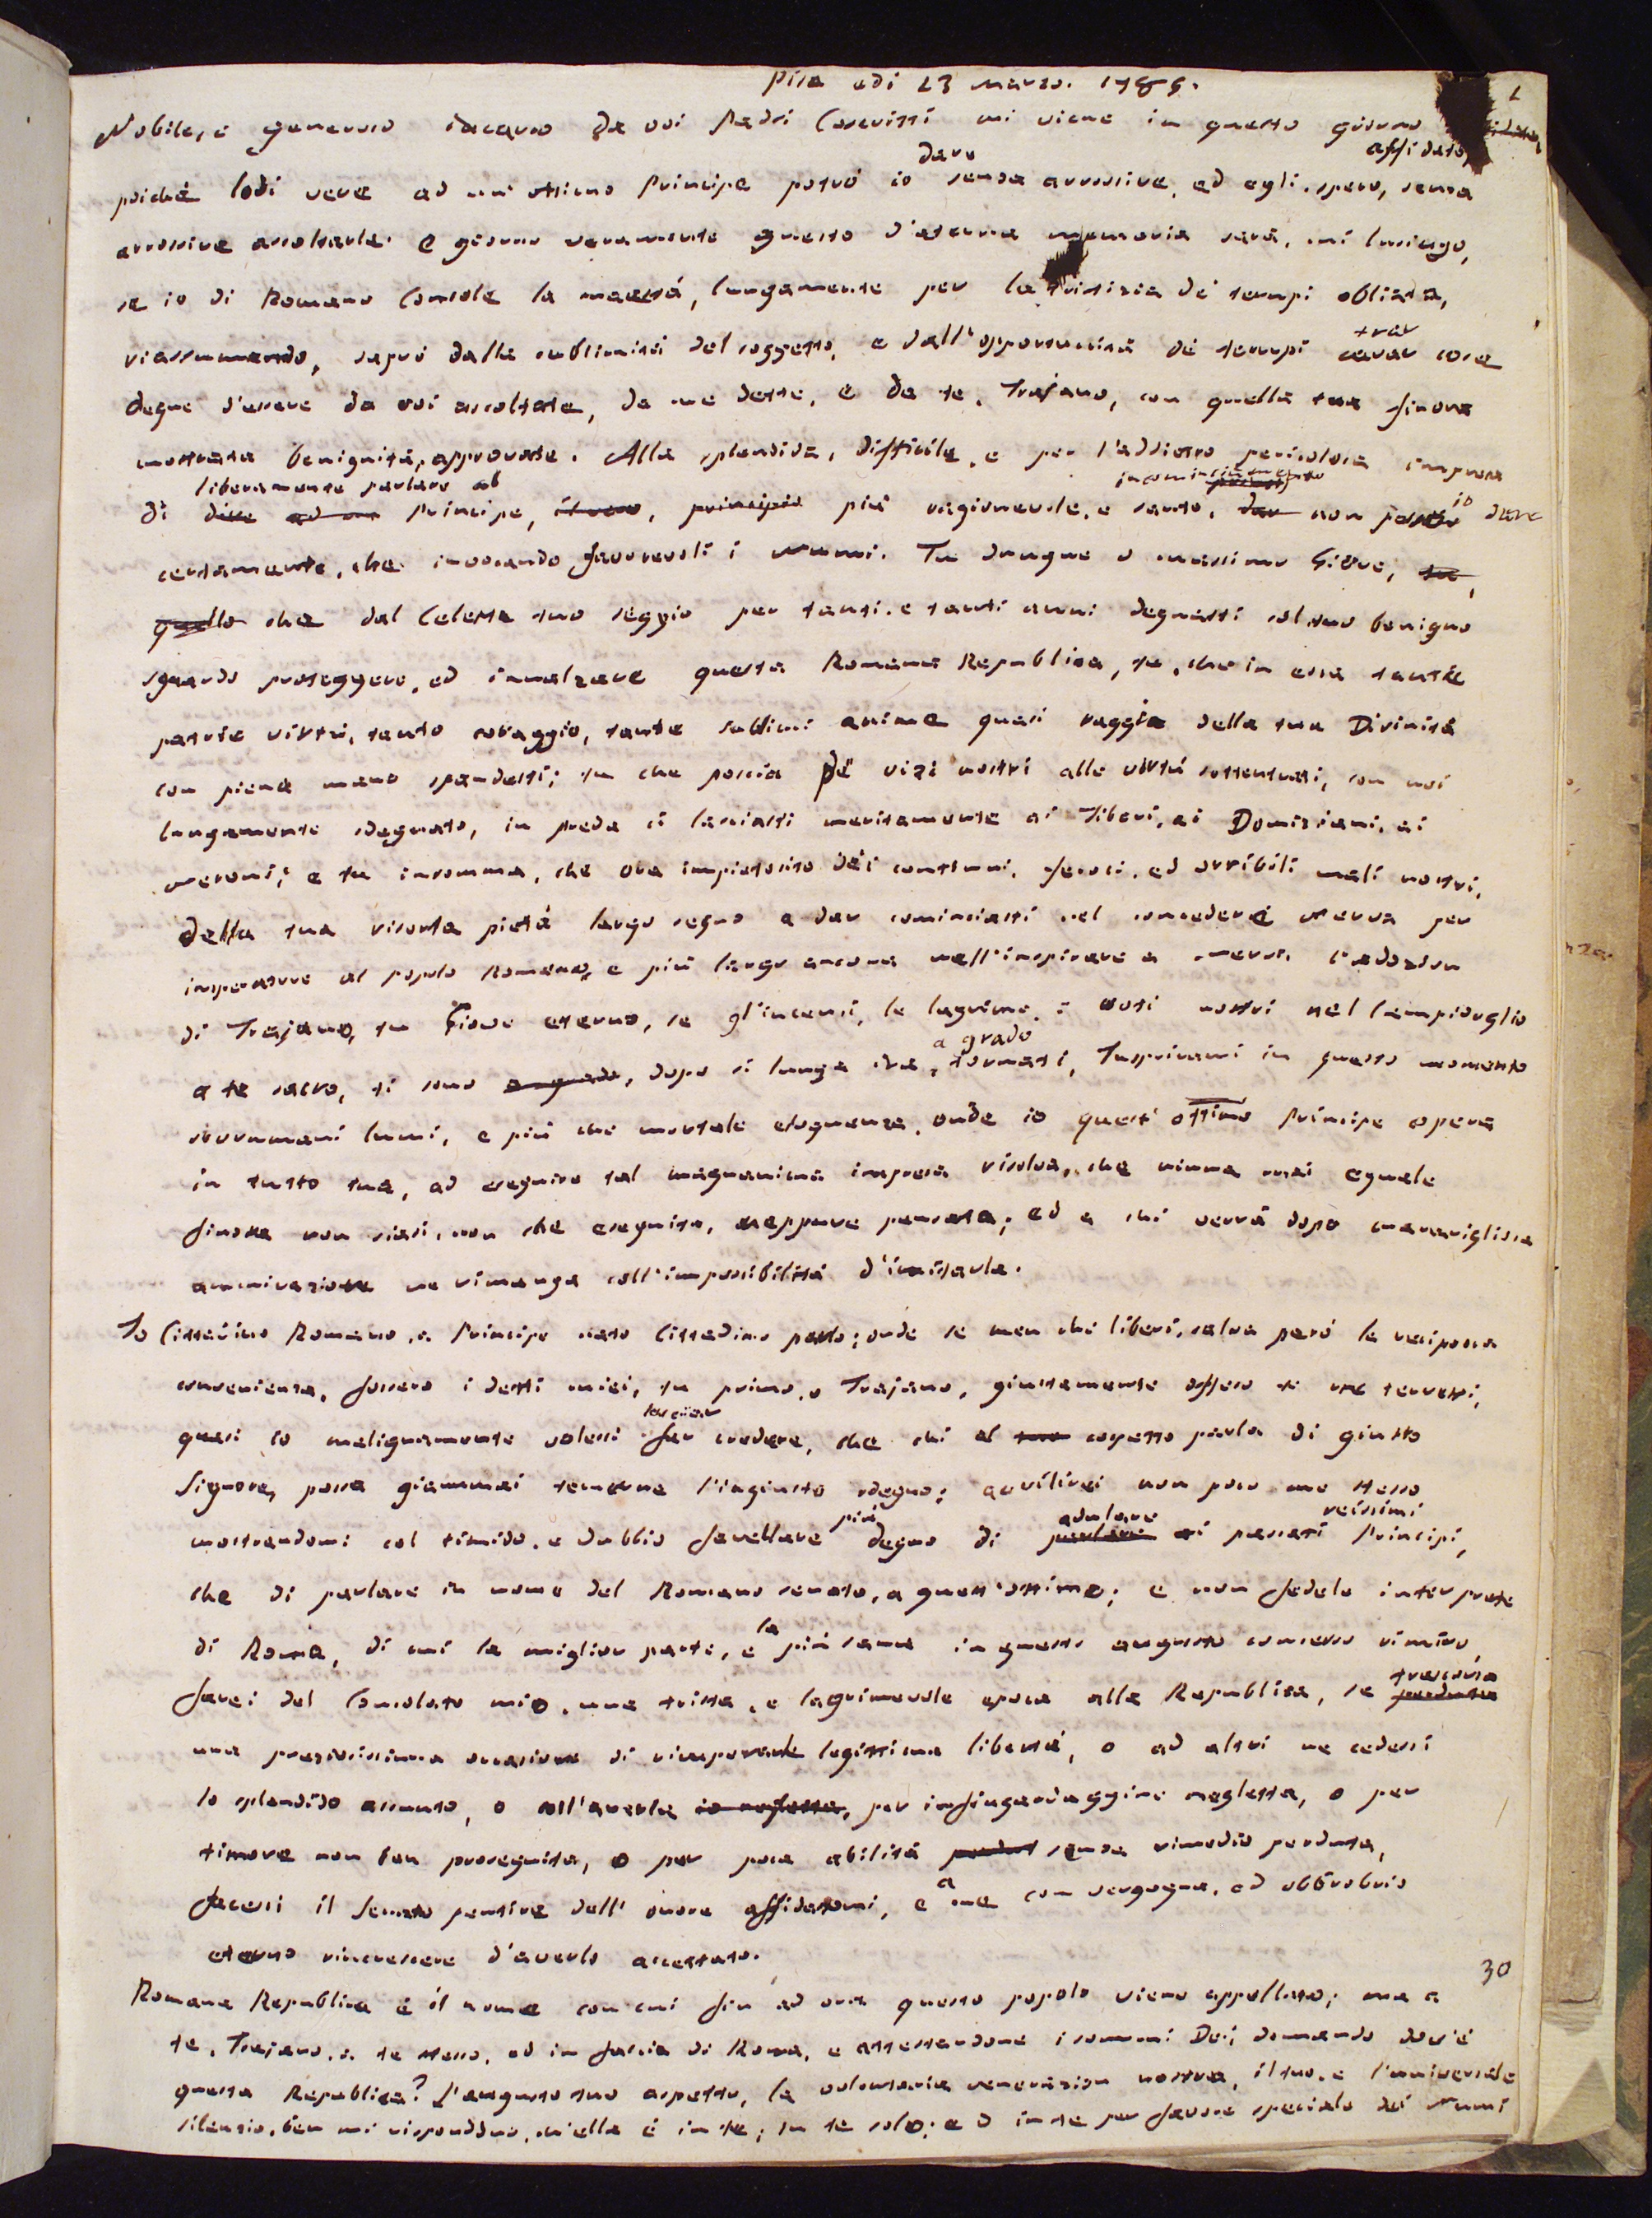 Pisa adi 23 marzo. 1785.
1
Nobile, e generoso incarco da voi Padri Coscritti mi viene in questo giorno
affidato,
dare
poiché lodi vere ad un' ottimo Principe potrò io senza arrossire, ed egli, spero, senza
arrossire ascoltarle. E giorno veramente questo d'eterna memoria sarà, mi lusingo,
se io di Romano Console la maestà, lungamente per la tristizia de' tempi obliata,
riassumendo, saprò dalla sublimità del soggetto, e dall'opportunità de' tempi cavar trar cose
degne d'essere da voi ascoltate, da me dette, e da te, Trajano, con quella tua finora
mostrata benignità, approvate. Alla splendida, difficile, e per l'addietro pericolosa impresa
liberamente parlare al
incominciamento
di dire ad un Principe, il vero, principio più ragionevole, e santo, dar non posso io dare
certamente, che invocando favorevoli i Numi. Tu dunque o massimo Giove, tu,
quello che dal Celeste tuo seggio per tanti, e tanti anni degnasti col tuo benigno
sguardo proteggere, ed innalzare questa Romana Republica, tu, che in essa tante
patrie virtù, tanto coraggio, tante sublimi anime quasi raggio della tua Divinità
con piena mano spandesti; tu che poscia pe' vizi nostri alle virtù sottentrati, con noi
lungamente sdegnato, in preda ci lasciasti meritamente ai Tiberi, ai Domiziani, ai
Neroni; e tu insomma, che ora impietosito dei continui, feroci, ed orribili mali nostri,
della tua risorta pietà largo segno a dar cominciasti nel concedere Nerva per
imperatore al popolo Romano, e più largo ancora nell'inspirare a Nerva l'adozion
di Trajano, tu Giove eterno, se gl'incensi, le lagrime, i voti nostri nel Campidoglio
a grado
a te sacro, ti sono a grado, dopo sì lunga ira, tornati, Inspirami in questo momento
sovrumani lumi, e più che mortale eloquenza, onde io quest' ottimo Principe opera
in tutto tua, ad eseguire tal magnanima impresa risolva, che niuna mai eguale
finora non siasi, non che eseguita, neppure pensata; ed a chi verrà dopo maravigliosa
ammirazione ne rimanga coll'impossibilità d'imitarla.
Io Cittadino Romano, a Principe nato Cittadino parlo; onde se men che liberi, salva però la reciproca
convenienza, fossero i detti miei, tu primo, o Trajano, giustamente offeso te ne terresti,
lasciar
quasi io malignamente volessi far credere, che chi al tuo cospetto parla di giusto
Signore, possa giammai temerne l'ingiusto sdegno; avvilirei non poco me stesso
più
adulare
reissimi
mostrandomi col timido, e dubbio favellare degno di parlare ai passati Principi,
che di parlare in nome del Romano senato, a quest'ottimo; e non fedele interprete
di Roma, di cui la miglior parte, e la più sana in questo augusto consesso rimiro,
farei del Consolato mio, una trista, e lagrimevole epoca alla Republica, se trascorsa perduta
una preziosissima occasione di rimparante legittima libertà, o ad altri ne cedessi
lo splendido assunto, o coll'averla io negletta, per infingardaggine negletta, o per
timore non ben proseguita, o per poca abilità senza rimedio perduta,
facessi il Senato pentire dell' onore affidatomi, e a me con vergogna, ed obbrobrio
eterno rincrescere d'averlo accettato.
30
Romana Republica è il nome con cui fin ad ora questo popolo viene appellato; ma a
te, Trajano, a te stesso, ed in faccia di Roma, e attestandone i sommi Dei, domando dov'è
questa Republica? l'augusto tuo aspetto, la volontaria venerazion nostra, il tuo, e l'universale
silenzio, ben mi rispondono, ch'ella è in te; in te solo; e in te per favore speciale dei Numi